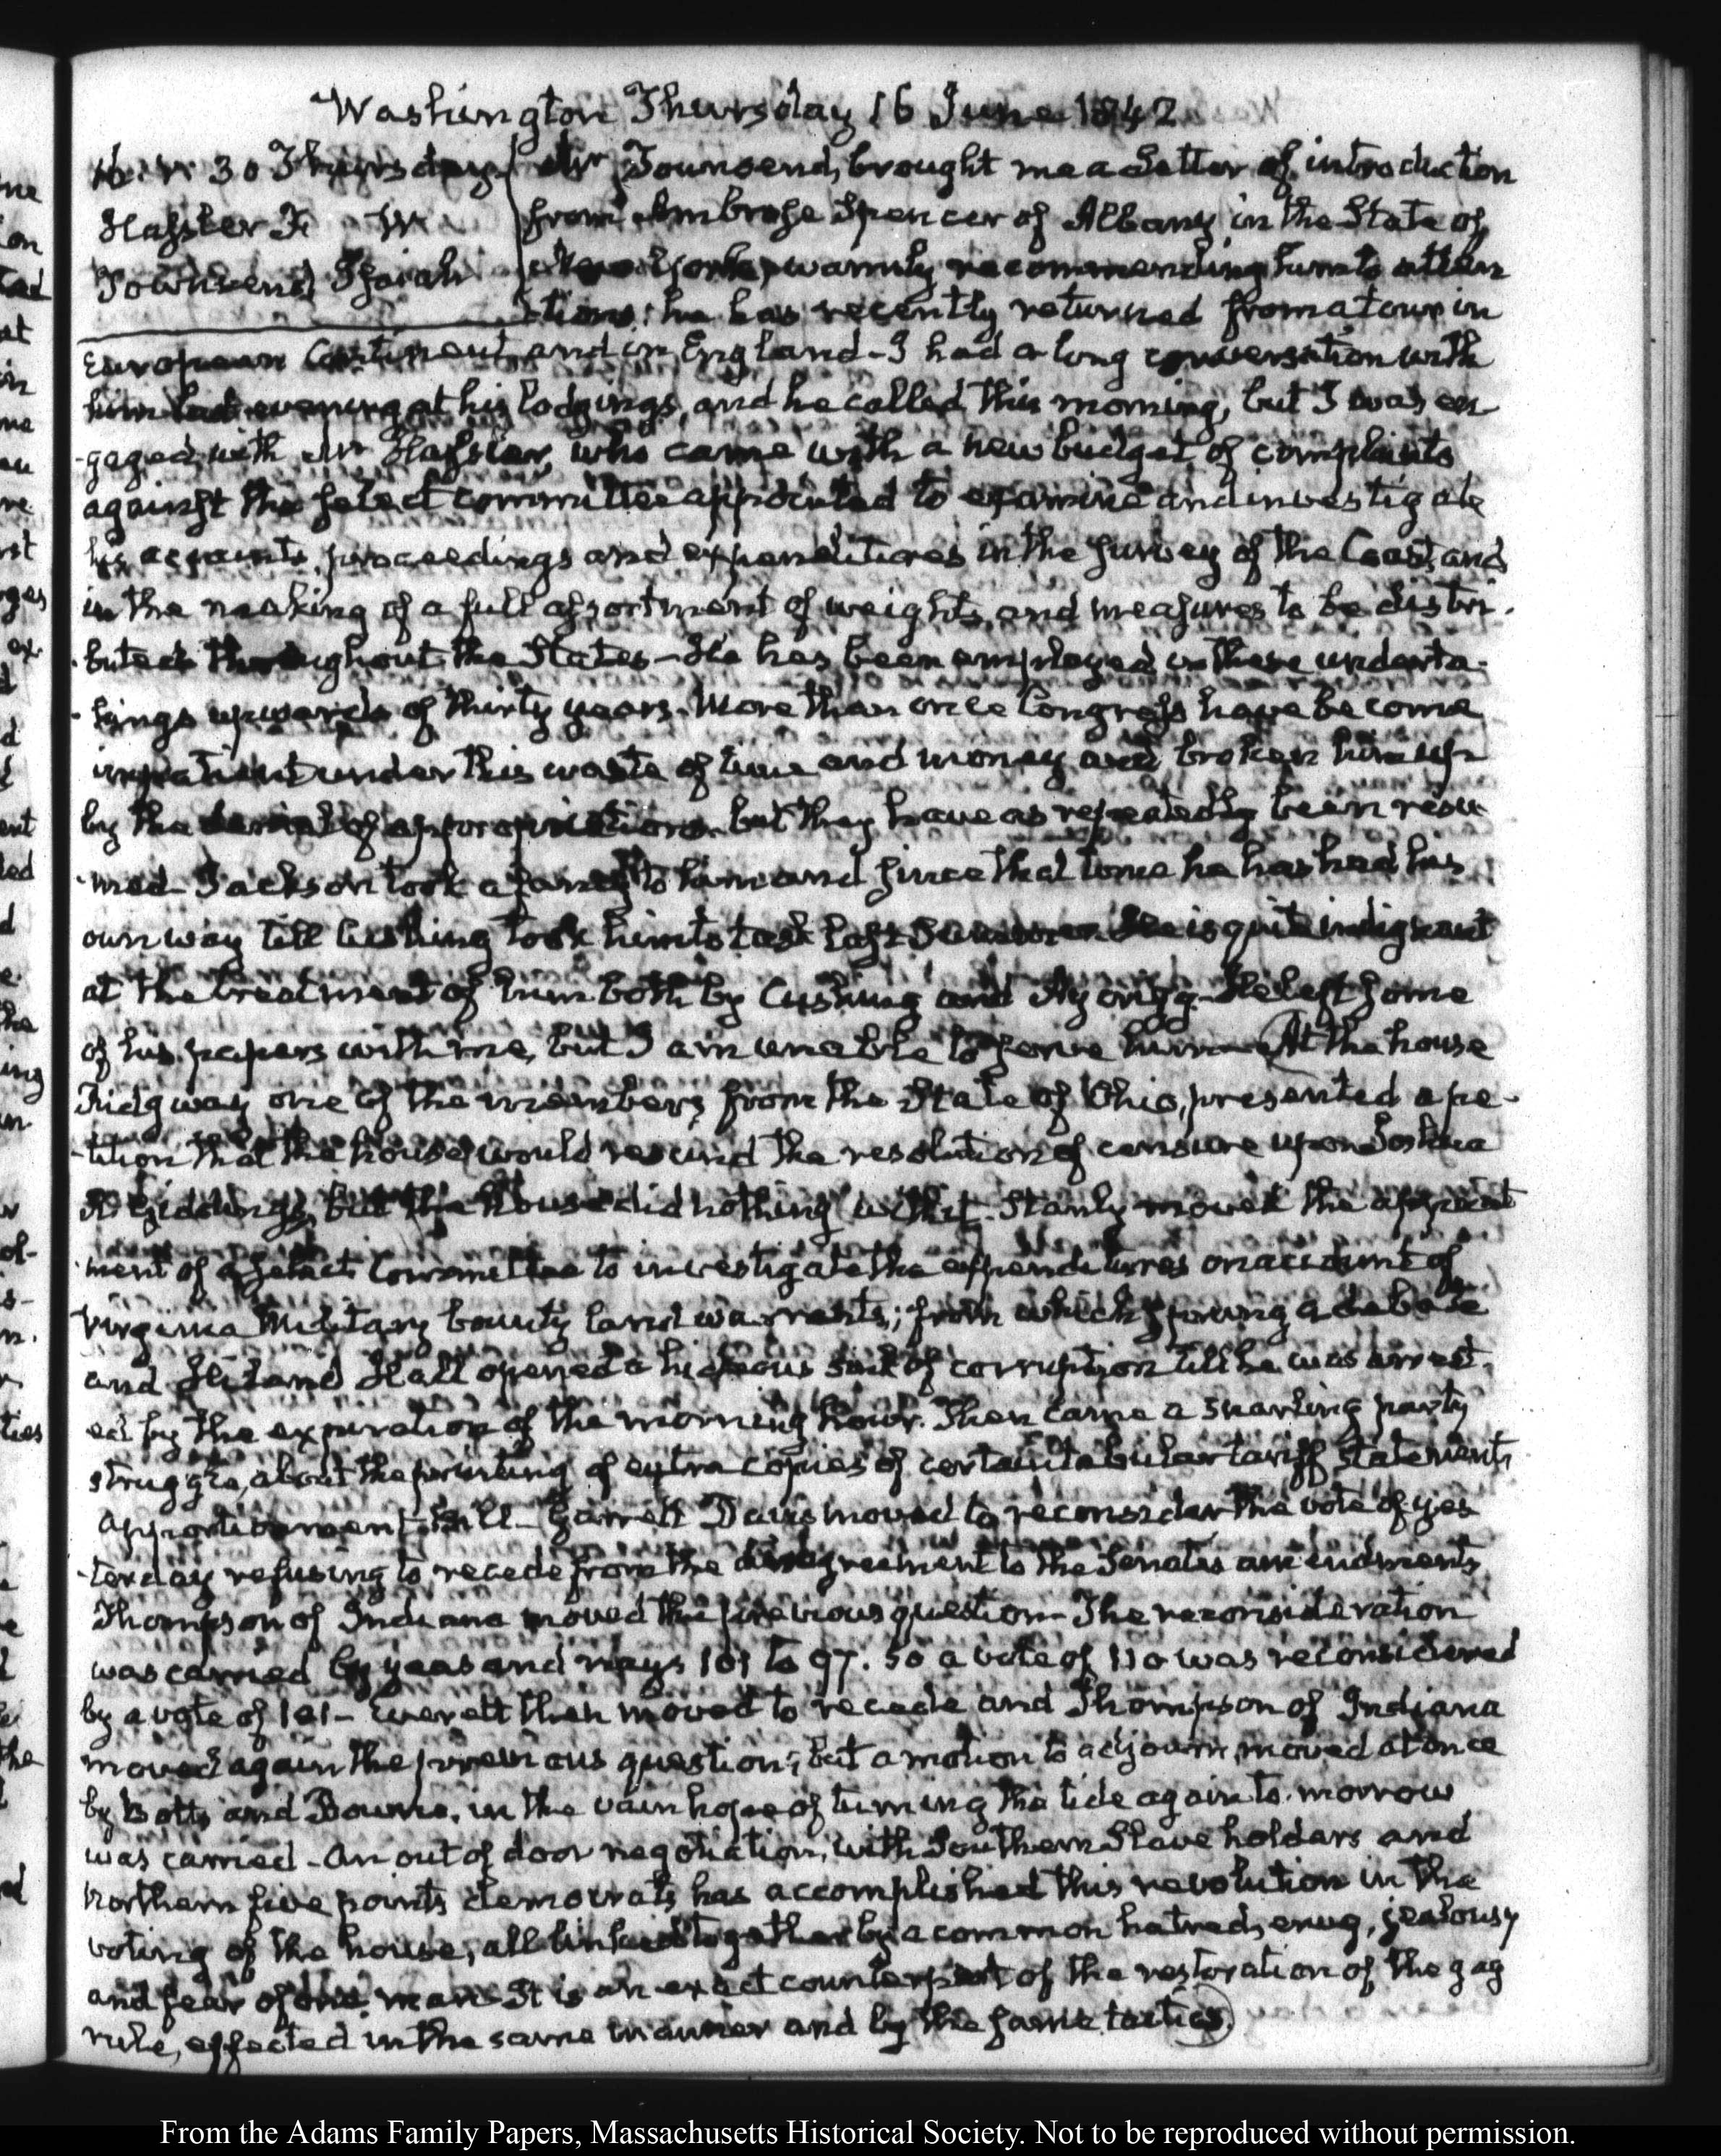 Washington Thursday 16 June 1842
16. V: 30 Thursday
Hassler F. W
Townsend Isaiah
Mr Townsend, brought me a Letter of introduction
from Ambrose Spencer of Albany in the State of
New York, warmly recommending him to atten
-tions: he has recently returned from a tour in
European Continent and in England - I had a long conversation with
him last evening at his lodgings, and he called this morning, but I was en
-gaged with Mr Hassler, who came with a new budget of complaints
against the select committee appointed to examine and investigate
his accounts, proceedings and expenditures in the survey of the Coast, and
in the making of a full assortment of weights, and measures to be distri-
-buted throughout the States - He has been employed in these underta-
-kings upwards of thirty years. More than once Congress have become
impatient under this waste of time and money and broken him up
by the denial of appropriations. but they have as repeatedly been resu
-med - Jackson took a fancy to him and since that time he has had his
own way till Cushing took him to task last Summer. He is quite indignant
at the treatment of him both by Cushing and Aycrigg - He left some
of his papers with me, but I am unable to serve him - At the house
Ridgway one of the members from the State of Ohio, presented a pe-
-tition that the house would rescind the resolution of censure upon Joshua
R Giddings, but the house did nothing with it. Stanly moved the appoint
-ment of a select Committee to investigate the expenditures on account of
Virginia Military bounty land warrants; from which sprung a debate
and Hiland Hall opened a hideous sink of corruption till he was arrest-
ed by the expiration of the morning hour. Then came a snarling party
struggle, about the printing of extra copies of certain tabular tariff statements
Apportionment Bill - Garrett Davis moved to reconsider the vote of yes
-terday refusing to recede from the disagreement to the Senates amendments
Thompson of Indiana moved the previous question - The reconsideration
was carried by yeas and nays 101 to 97. so a vote of 110 was reconsidered
by a vote of 101 - Everett then moved to recede and Thompson of Indiana
moved again the previous question; but a motion to adjourn, moved at once
by Botts and Bowne, in the vain hope of turning the tide again to-morrow
was carried - An out of door negotiation, with Southern Slave holders and
Northern five points democrats has accomplished this revolution in the
voting of the house, all linked together by a common hatred, envy, jealousy
and fear of one man - It is an exact counterpart of the restoration of the gag
rule, effected in the same manner and by the same tactics.
From the Adams Family Papers, Massachusetts Historical Society. Not to be reproduced without permission.